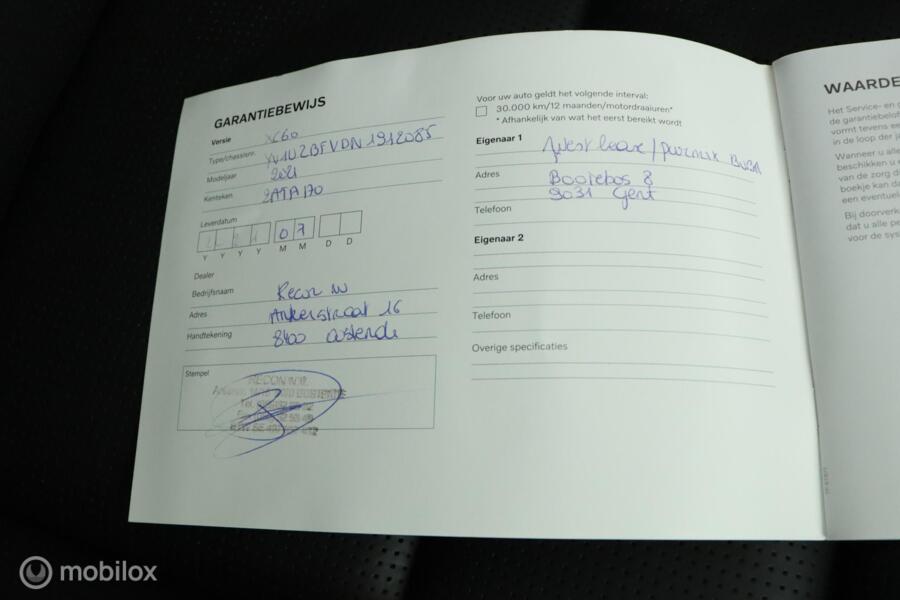 GARANTIEBEWIJS
Versie XC60
Type/chassisnr. YV1UZBFVDN1912085
Modeljaar 2021
Kenteken 2ATA170
Leverdatum
2 2 1 0 7
Y Y Y Y M M D D
Dealer
Bedrijfsnaam Recor NV
Adres Ankerstraat 16
Handtekening 8400 Oostende
Stempel
RECOR N.V.
Voor uw auto geldt het volgende interval:
30.000 km/12 maanden/motordraaiuren*
* Afhankelijk van wat het eerst bereikt wordt
Eigenaar 1 Westlease /
Adres Bootebos 8
9031 Gent
Telefoon
Eigenaar 2
Adres
Telefoon
Overige specificaties
WAARDE
Het Service- en
de garantiebelof
vormt tevens ee
in de loop der j
Wanneer u alle
beschikken u e
van de zorg d
boekje kan da
een eventuel
Bij doorverk
dat u alle pe
voor de sys
mobilox